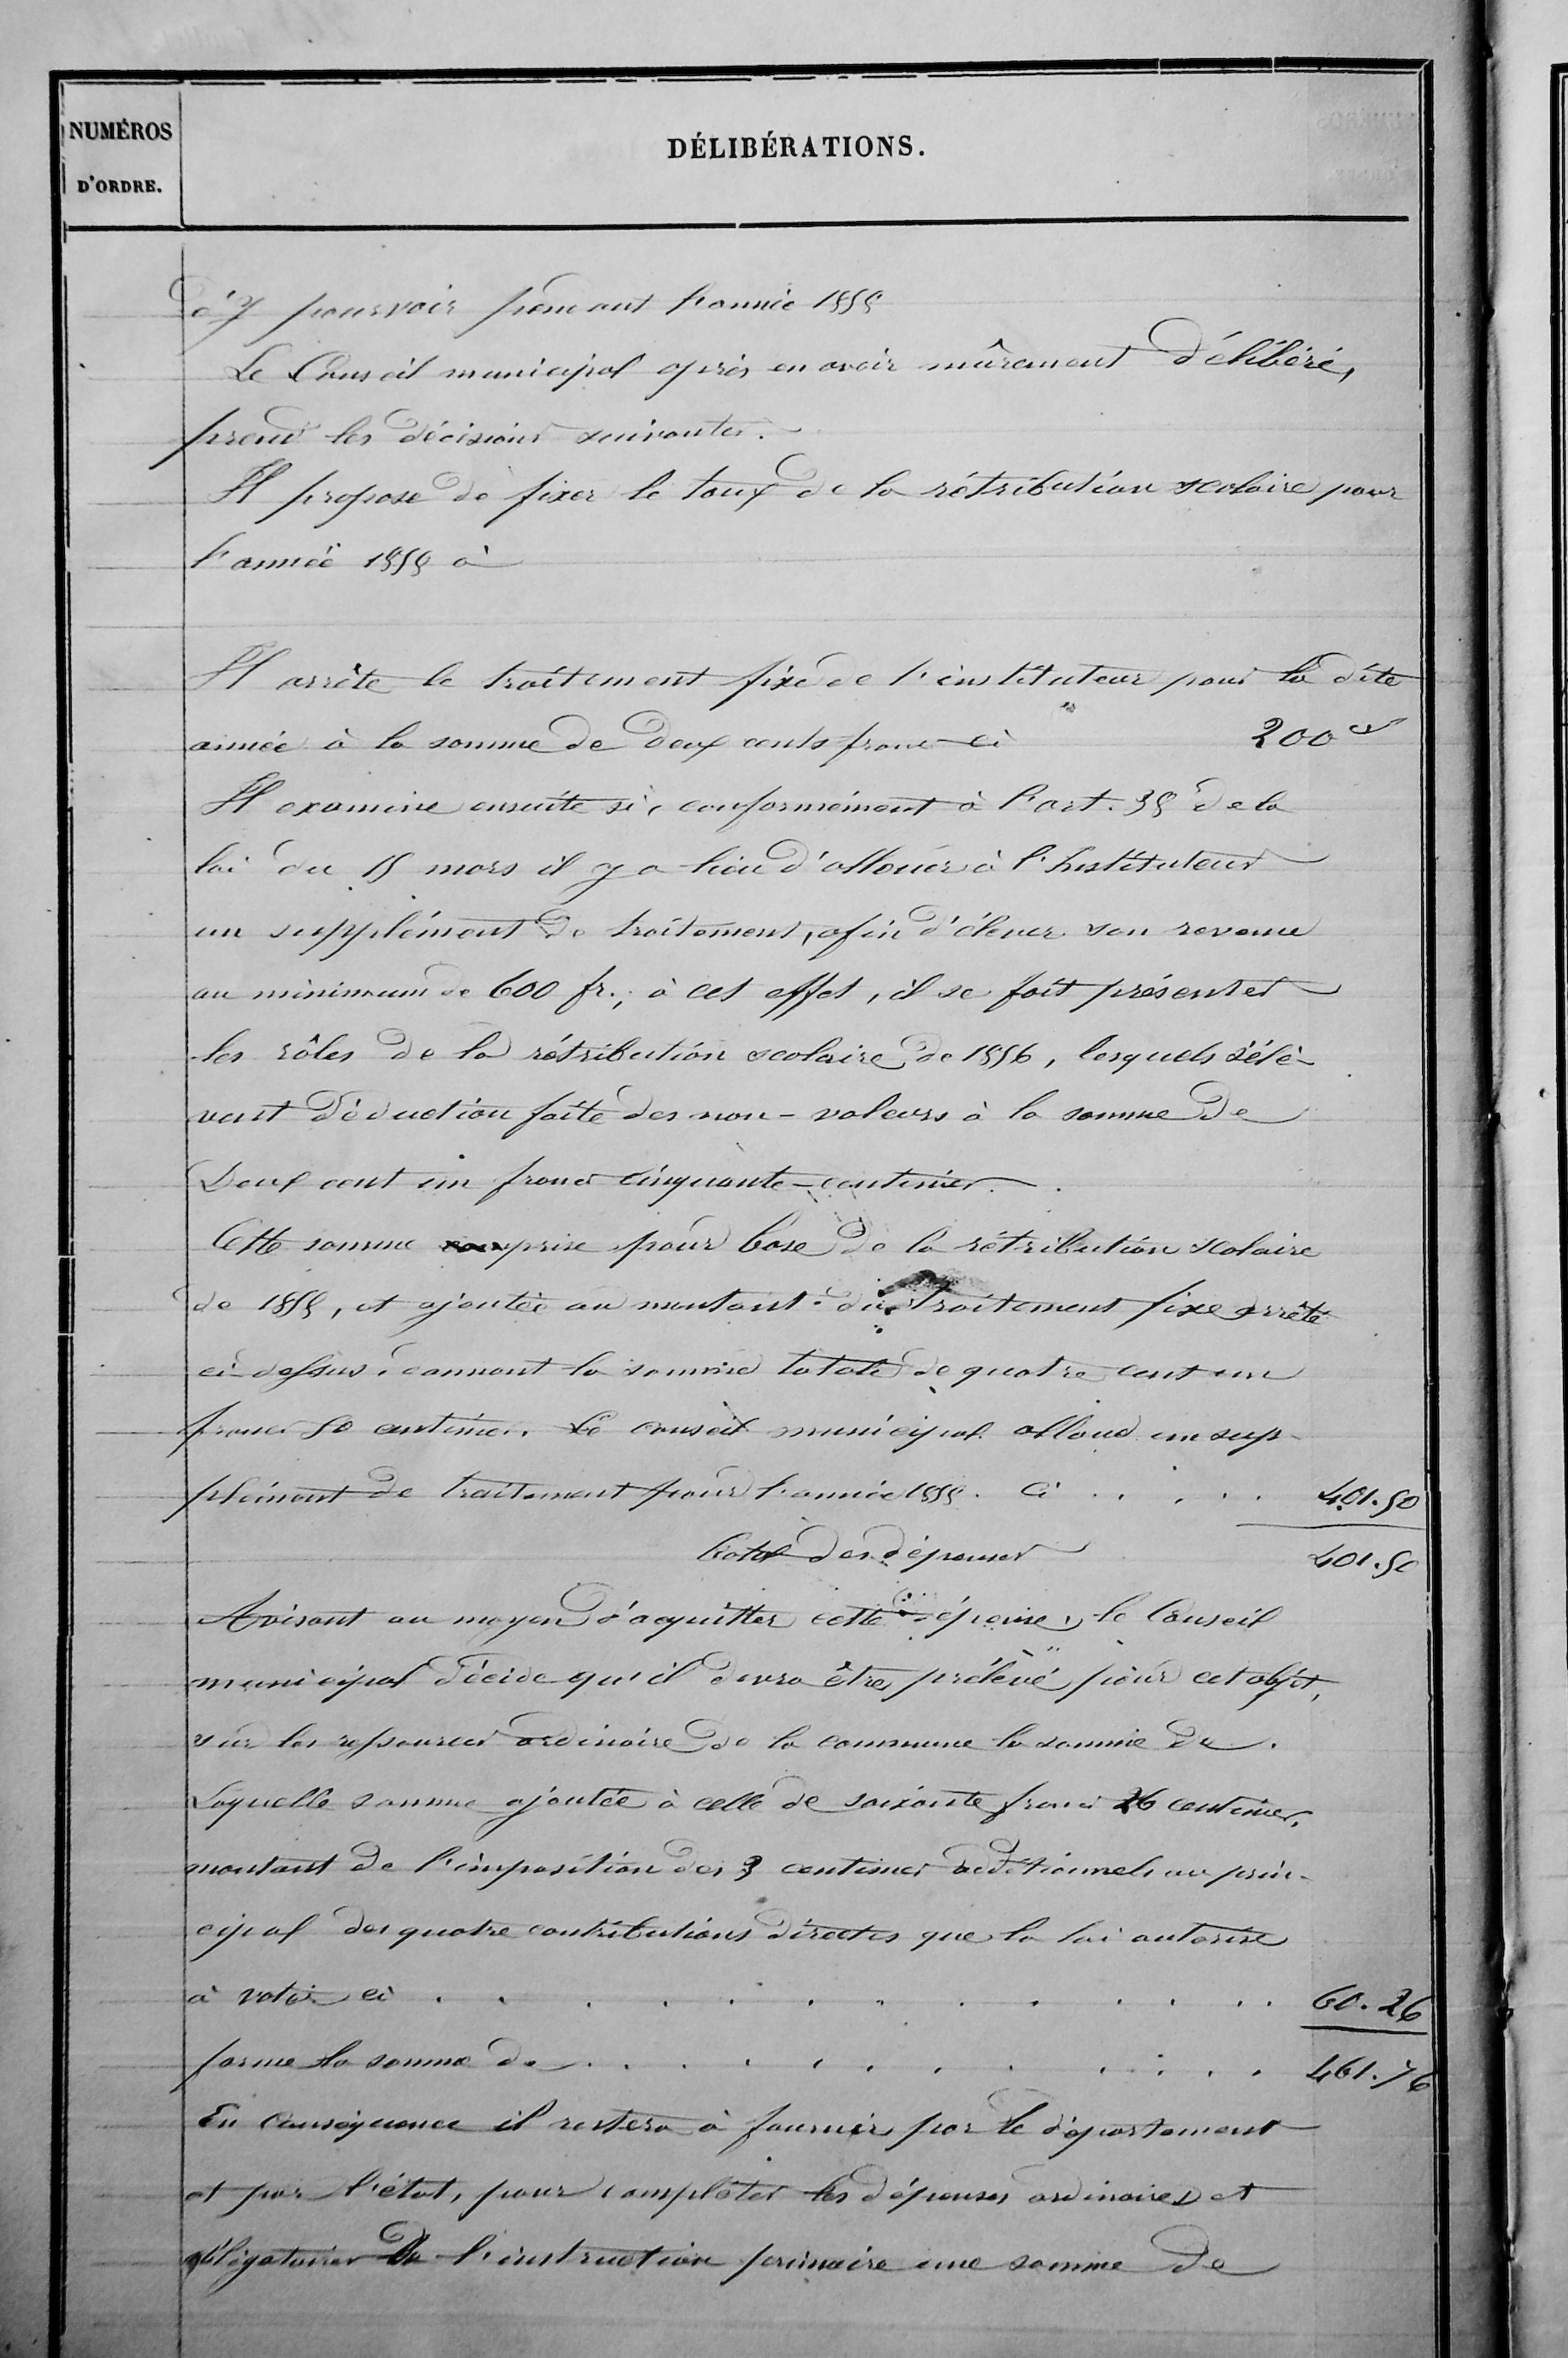 NUMÉROS
D'ORDRE.
DÉLIBÉRATIONS.
d'y pourvoir pendant l'année 1858
Le Conseil municipal après en avoir mûrement délibéré,
prend les décisions suivantes.
Il propose de fixer le taux de la rétribution scolaire pour
l'année 1858 à
Il arrête le traitement fixe de l'instituteur pour la dite
année à la somme de deux cents francs ci 200
Il examine ensuite si, conformément à l'art. 38 de la
loi du 15 mars il y a lieu d'allouer à l'Instituteur
un supplément de traitement, afin d'élever son revenu
au minimum de 600 fr.; à cet effet, il se fait présenter
les rôles de la rétribution scolaire de 1856, lesquels s'élè-
vent déduction faite des non-valeurs à la somme de
Deux cent un francs cinquante centimes.
Cette somme prise pour base de la rétribution scolaire
de 1858, et ajoutée au montant du traitement fixe arrêté
ci-dessus, donnant la somme totale de quatre cent un
francs 50 centimes. Le conseil municipal alloue un sup-
plément de traitement pour l'année 1858. Ci . . . . . 401.50
Total des dépenses 401.50
Avisant au moyen d'acquitter cette dépense, le Conseil
municipal décide qu'il devra être prélevé pour cet objet,
sur les ressources ordinaire de la commune la somme de.
Laquelle somme ajoutée à celle de soixante francs 26 centimes,
montant de l'imposition des 3 centimes additionnels au prin-
cipal des quatre contributions directes que la loi autorise
à voter ci . . . . . . . . . . . . . 60.26
forme la somme de . . . . . . . . . . 461.76
En conséquence il restera à fournir par le département
et par l'état, pour compléter les dépenses ordinaires et
obligatoires de l'instruction primaire une somme de